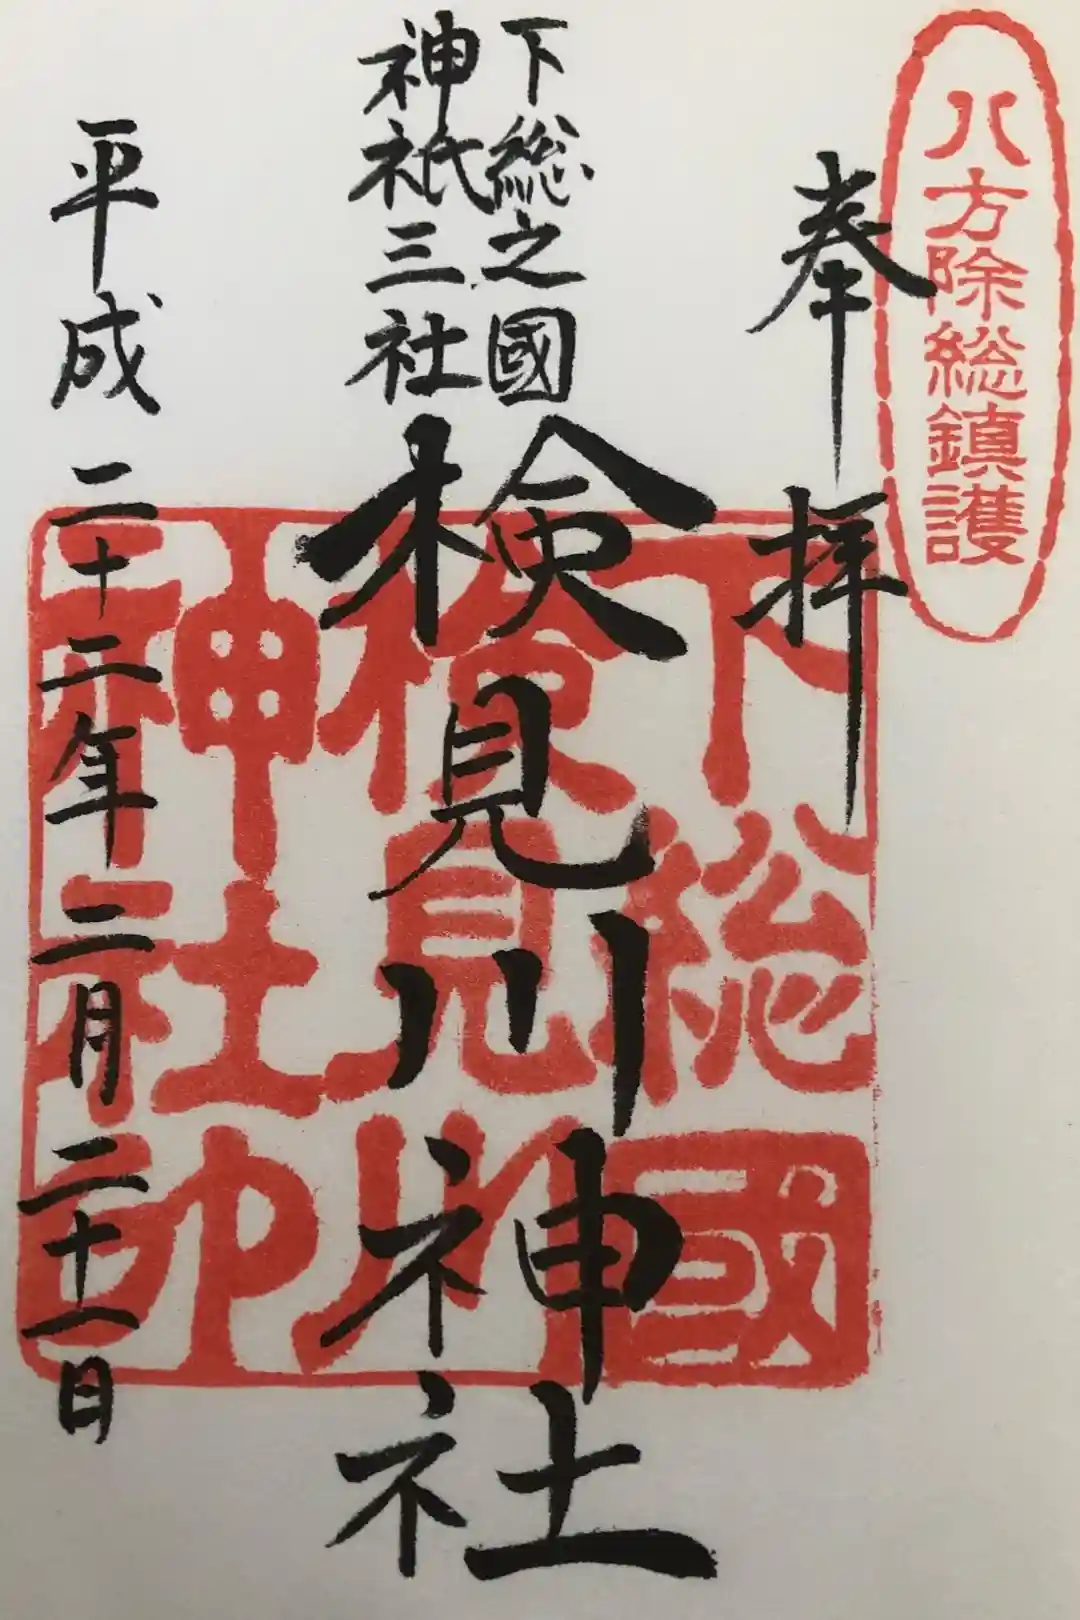 八方除総鎮護
奉拝
下総之國
神祇三社
検見川神社
下総國
検見川
神社印
平成二十二年二月二十一日